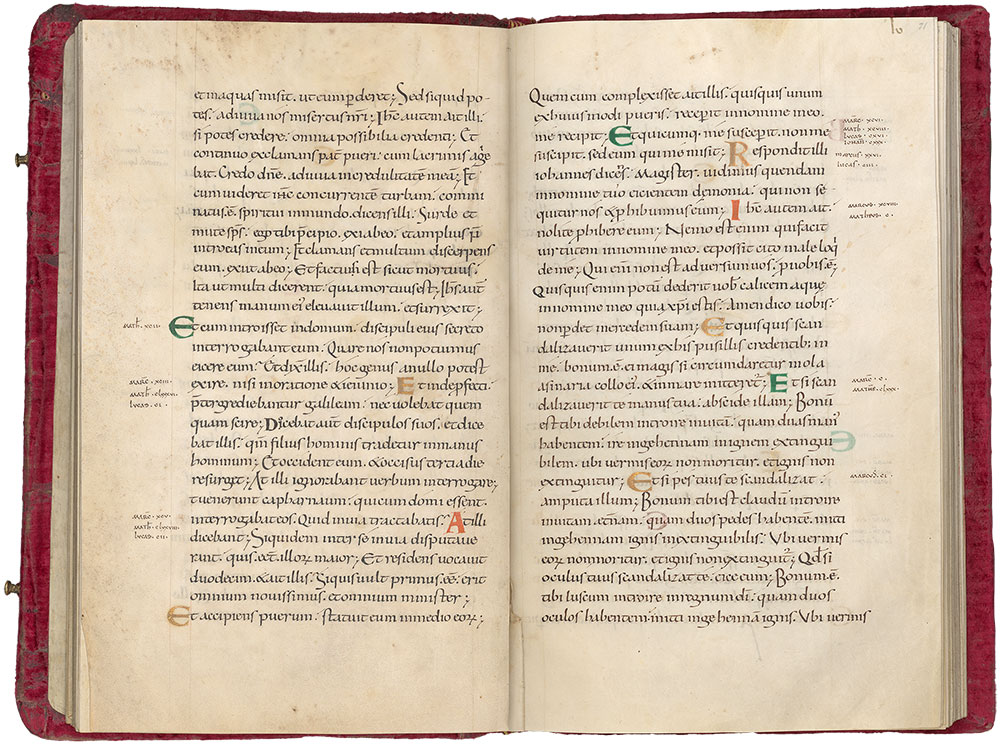 et in aquas misit. ut eum pderet; Sed si quid po-
tes. adiuva nos misertus nri; Ihc autem ait illi.
si potes credere. omnia possibilia credenti; Et
continuo exclamans pat pueri. cum lacrimis age
bat. Credo dne. adiuva incredulitatē meā; Et
cum videret ihc concurrentē turbam. commi
natus.ē. spiritui inmundo. dicens illi. Surde et
mute sps. ego tibi pcipio. exi ab eo. et amplius
introeas in eum; Et clamans et multum discerpens
eum. exiit ab eo; Et factum est sicut mortuus.
Ita ut multi dicerent. quia mortuus est; Ihs aut
tenens manum ei elevavit illum. et surrexit;
Math. xciii.
Et cum introisset in domum. discipuli eius secreto
interrogabant eum. Quare nos non potuimus
eicere eum; Et dix illis. hoc genus. in nullo potest
Marc. xciiii.
exire. nisi in oratione & ieiunio; Et inde pfecti.
Math. clxxvi.
ptergrediebantur galileam. nec volebat quem
Lucas. ci.
quam scire; Docebat aut discipulos suos. et dice
bat illis. qm filius hominis tradetur in manus
hominum; Et occident eum. & occisus tertia die
resurget; At illi ignorabant verbum interrogare;
et venerunt capharnaum. qui cum domi essent.
Marc. xcv.
interrogabat eos. Quid in via tractabatis. At illi
Math. clxxviii.
dicebant; Siquidem inter se in via disputave
Lucas. cii.
rant. quis.eēt.illor maior; Et residens vocavit
duodecim. & ait illis. Si quis vult primus.eē. erit
omnium novissimus. et omnium minister;
Et accipiens puerum. statuit eum in medio eor;
71
Quem cum complexisset. ait illis. quisquis unum
ex huiusmodi pueris. recepit in nomine meo.
me recipit; Et quicumq. me susceperit. non me
Marc. xcvi.
Math. xcviii.
Lucas. cxvi
Iohan. cxx.
suscipit. sed eum qui me misit; Respondit illi
Marcus. xxvi.
Lucas. ciii.
iohannes dices. Magister. vidimus quendam
in nomine tuo eicientem demonia. qui non se-
quitur nos & phibuimus eum; Ihc autem ait.
Marcus. xcviii.
Matheus. c.
nolite phibere eum; Nemo est enim qui faciat
virtutem in nomine meo. et possit cito male loq
de me; Qui enī non est adversum vos. p vobis.ē;
Quisquis enim potū dederit vob calicem aque
in nomine meo quia xpi estis. Amen dico vobis.
non pdet mercedem suam; Et quisquis scan
dalizaverit unum ex his pusillis credentib; in
me. bonum.ē. ei magis si circumdaretur mola
asinaria collo ei. & in mare mitteret; Et si scan
Marc. c.
Math. clxxx.
dalizaverit te manus tua. abscide illam; Bonū
est tibi debilem introire in vitā. quam duas man
habentem. ire in gehennam in ignem extingui
bilem. ubi vermis eor non moritur. et ignis non
extinguitur; Et si pes tuus te scandalizat.
Marcus. ci.
amputa illum; Bonum tibi est claudū introire
in vitam etnam. quam duos pedes habentē. mitti
in gehennam ignis inextinguibilis. Ubi vermis
eor non moritur. et ignis non extinguit; Qd si
oculus tuus scandalizat te. eice eum; Bonum.ē.
tibi luscum introire in regnum di. quam duos
oculos habentem. mitti in gehennā ignis. Ubi vermis